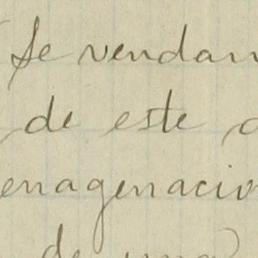 Se vendan
de este
enagenacio
de una